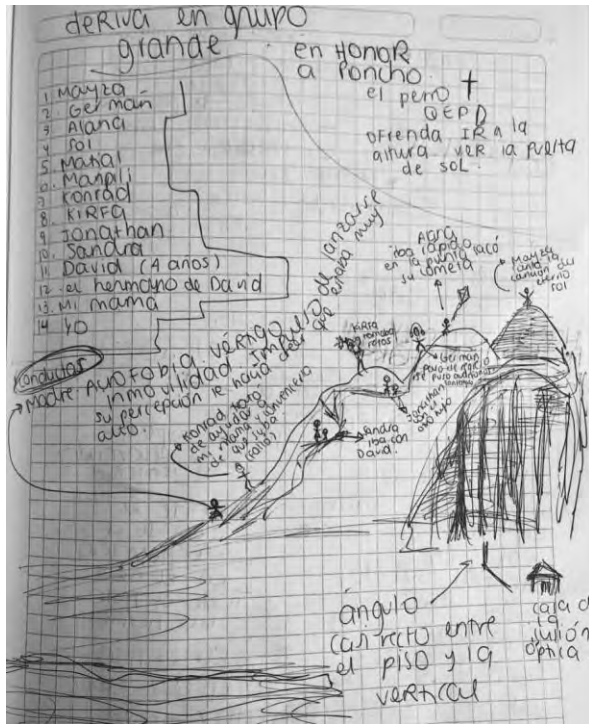 deRiva en grupo
grande
en HonoR
a Poncho
el perro
QEPD
OFRenda IR a la
altura veR la puerta
de sol.
1 Mayza
2. Germán
3 Alana
4 sol
5. Matial
6. Manpli
7 Konrad
8. KIRFA
9 Jonathan
10. Sandra
11. David (4 anos)
12. el hermano de David
13. Mi mama
14 YO
Konductas
Madre: Acrofobia. Vértigo
inmovilidad. Impulso de lanzarse
su percepción le hacia decir que estaba muy
alto.
Konrad bajo
de ayudar a
mi mama y
que suba
Kirfa
tomaba
fotos
iba rápido
en la punta sacó
su cometa
Mayza
canción del
eterno
sol
German
Jonathan
Sandra
iba con
David.
ángulo
casi recto entre
el piso y la
vertical
casa de
la
ilusión
óptica